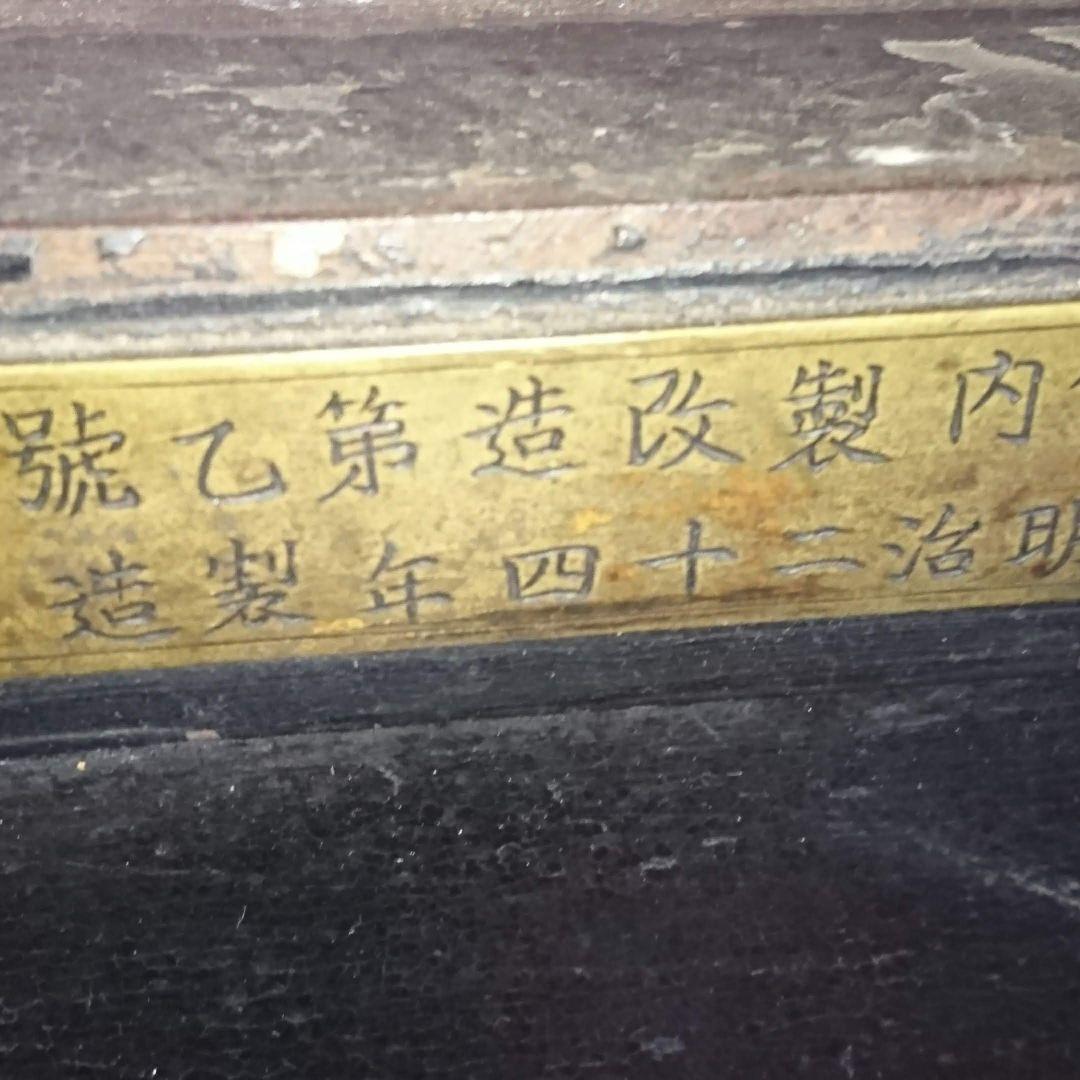 内製改造第乙號
明治二十四年製造